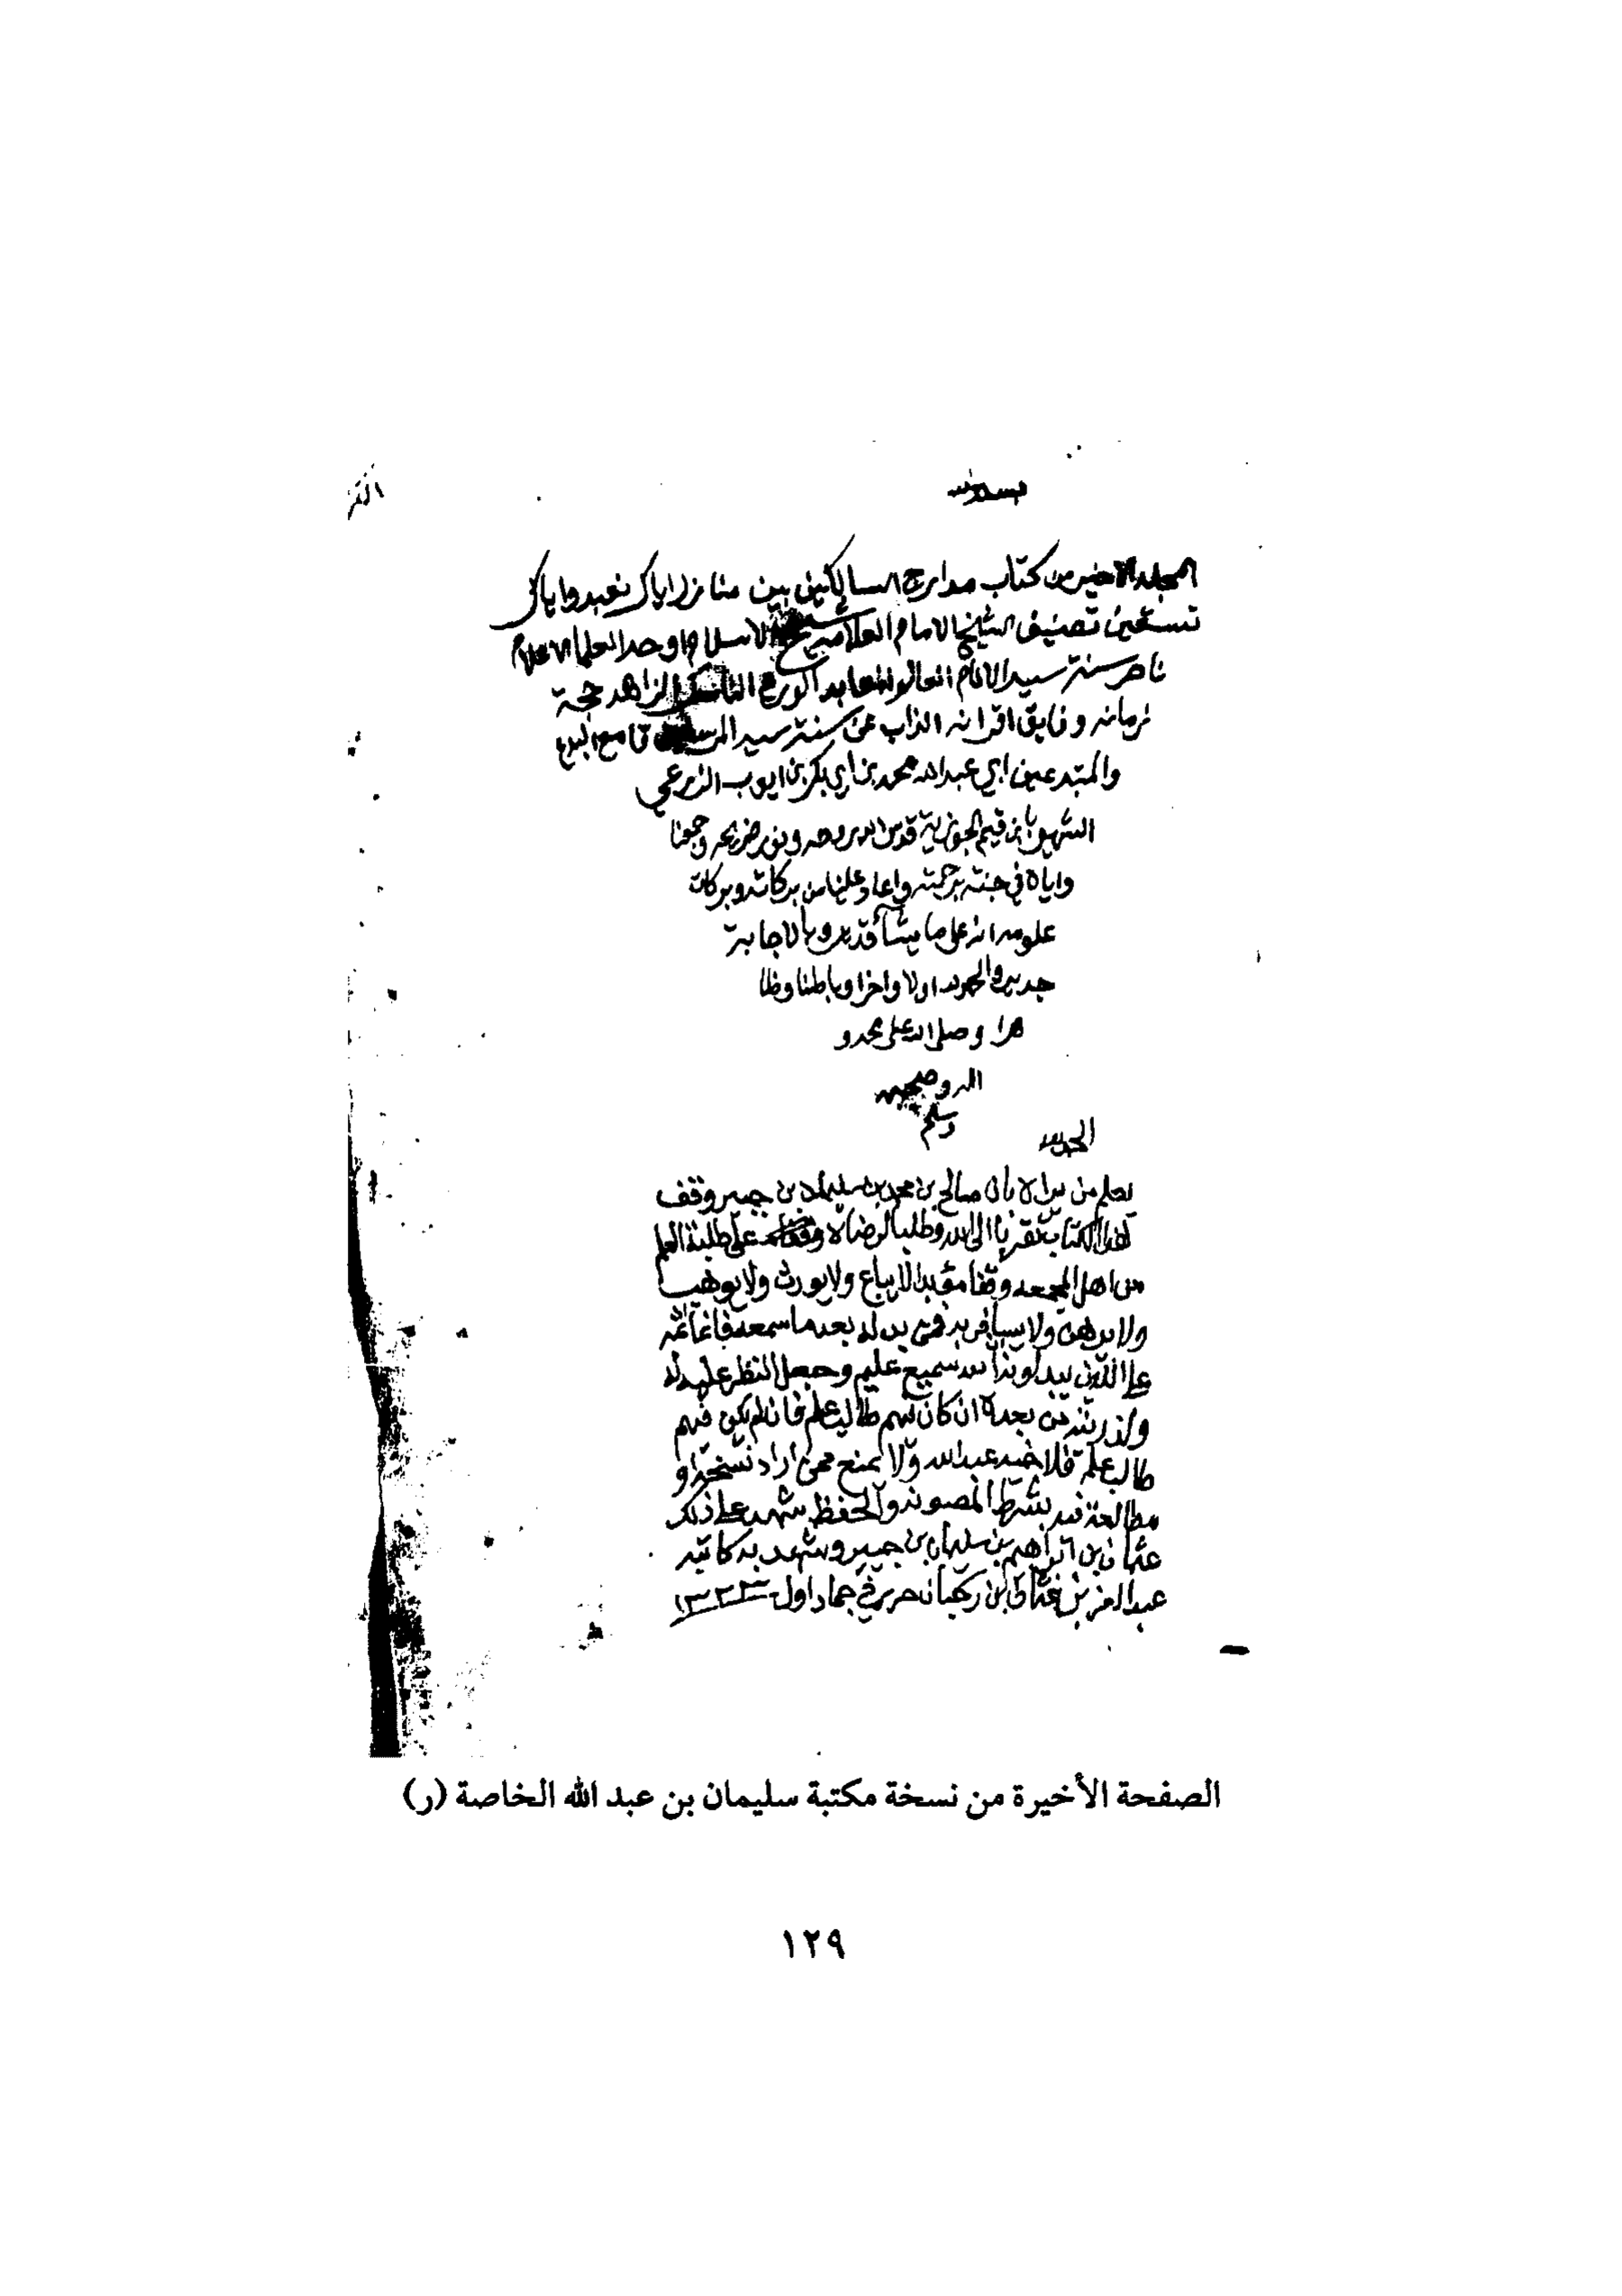 المجلد الاخير من كتاب مدارج السالكين بين منازل اياك نعبد واياك
نستعين تصنيف الشيخ الامام العلامة شيخ الاسلام اوحد العلما الاعلام
ناصر سنة سيد الانام العالم العابد الورع الناسك الزاهد حجة
زمانه وفايق اقرانه الذاب عن سنة سيد المرسلين قامع البدع
والمبتدعين ابي عبد الله محمد بن ابي بكر بن ايوب الزرعي
الشهير بابن قيم الجوزية قدس الله روحه ونور ضريحه وجمعنا
واياه في جنته برحمته واعاد علينا من بركاته وبركات
علومه انه على ما يشآ قدير وبالاجابة
جدير والحمد لله اولا واخرا وباطنا وظا
هرا وصلى الله على محمد و
اله وصحبه
وسلم
الحمد لله
يعلم من يراه بان صالح بن محمد بن سليمان بن جبير وقف
هذا الكتاب تقربا الى الله وطلبا لرضاه وقفه على طلبة العلم
من اهل المجمعه وقفا مؤبدا لا يباع ولا يورث ولا يوهب
ولا يرهن ولا يسافر به فمن بدله بعد ما سمعه فانما اثمه
على الذين يبدلونه ان الله سميع عليم وجعل النظر عليه له
ولذريته من بعده ان كان فيهم طالب علم فان لم يكن فيهم
طالب علم فلاخيه عبد الله ولا يمنع ممن اراد نسخه او
مطالعة فيه بشرط الصونه والحفظ شهد على ذلك
عثمان بن ابراهيم بن سليمان بن جبير وشهد به كاتبه
عبد العزيز بن عثمان بن ركبان حرر في جماد اول ١٣٢٣
الصفحة الأخيرة من نسخة مكتبة سليمان بن عبد الله الخاصة (ر)
١٢٩